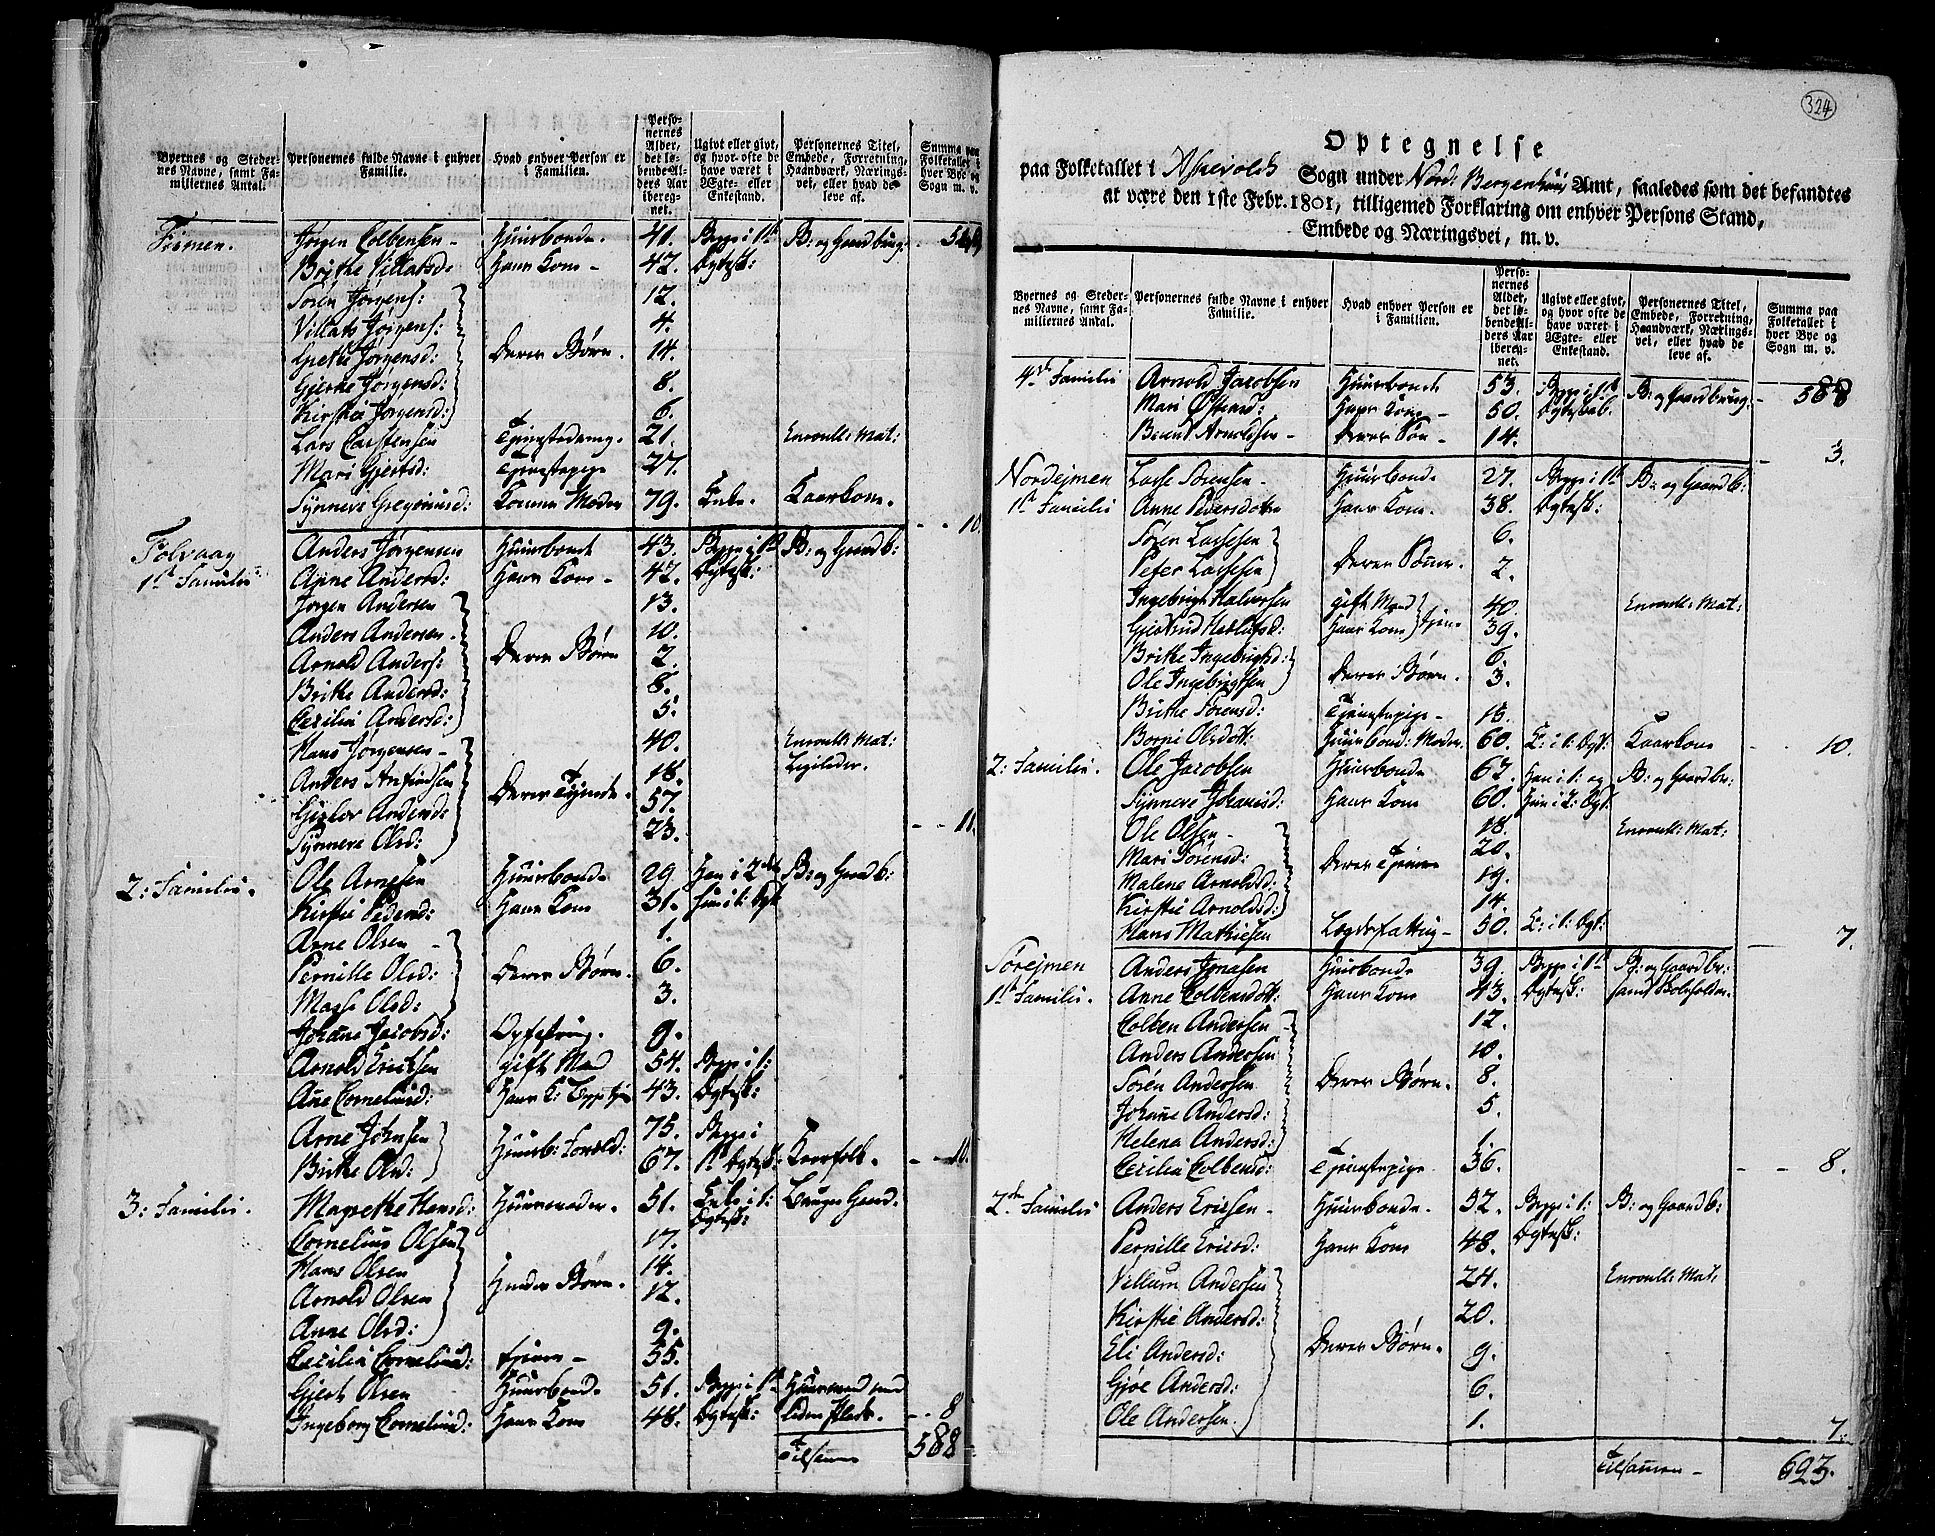 Byernes og Steder-
nes Navne, samt Fa-
miliernes Antal.
Personernes fulde Navne i enhver
Familie.
Hvad enhver Person er
i Familien.
Perso-
nernes
Alder,
det lø-
bende Al-
ders Aar
ibereg-
net.
Ugivt eller givt,
og hvor ofte de
have været i
Ægte- eller
Enkestand.
Personernes Titel,
Embede, Forretning,
Haandværk, Nærings-
vei, eller hvad de
leve af.
Summa paa
Folketallet i
hver Bye og
Sogn m. v.
Jørgen Colbensen - Huusbonde. 41. Begge i 1te B: og Gaardbrug:
Brithe Villatsd: Hans Kone - 42. Ægtesk:
Søren Jørgens: 12.
Villats Jørgens: 4.
Grethe Jørgensd: Deres Børn. 14.
Gierthe Jørgensd: 8.
Kirstie Jørgensd: 6.
Lars Carstensen Tjenestedreng. 21. Enroull: Mat:
Mari Giertsd: Tjenestepige 27.
Synneve Gregoriusd: Konens Moder 79. Enke. Kaarkone. 10.
Folvaag Anders Jørgensen Huusbonde 43. Begge i 1te B: og Gaardb:
1te Familie Anne Andersd: Hans Kone - 42. Ægtesk:
Jørgen Andersen 13.
Anders Andersen. 10.
Arnold Anders: Deres Børn 2.
Brithe Andersd: 8.
Cecilia Andersd: 5.
Hans Jørgensen - 40. Enroull: Mat:
Anders Anfindsen 18. Ligeledes.
Giertor Andersd: Deres Tjenere. 57.
Synneve Olsd: 23. 11.
2: Familie. Ole Arnesen Huusbonde 29 Han i 2det B: og Gaardb:
Kirstie Pedersd: Hans Kone 31. hun i 1: Ægt
Arne Olsen - 1.
Pernille Olsd: Deres Børn. 6.
Masse Olsd: 3.
Johane Jacobsd: Opfostring. 9.
Arnold Ericksen gift Mand 54. Begge i 1:
Ane Corneliusd: Hans K: 43. Ægtesk:
Arne Johnsen 75. Begge i
Brithe Olsd: Huusb: Foræld: 67. 1te Ægtesk: Kaarfolk. 10.
3: Familie. Magrethe Hansd: Huusmoder. 51. Enke i 1: Bruger Gaard.
Ægtesk:
Cornelius Olsen 17.
Hans Olsen 14.
Arnold Olsen Hendes Børn. 12.
Anne Olsd: 9.
Cecilia Corneliusd: tjener - 55.
Giert Olsen Huusbonde 51. Begge i 1te Huusmand med
Ingeborg Corneliusd: Hans Kone 48. Ægtesk: liden Plads. 8
Tilsammen 588
324
Optegnelse
paa Folketallet i Askevolds Sogn under Nord: Bergenhuus Amt, saaledes som det befandtes
at være den 1ste Febr. 1801, tilligemed Forklaring om enhver Persons Stand,
Embede og Næringsvei, m. v.
Byernes og Steder-
nes Navne, samt Fa-
miliernes Antal.
Personernes fulde Navne i enhver
Familie.
Hvad enhver Person er
i Familien.
Perso-
nernes
Alder,
det lø-
bende Al-
ders Aar
ibereg-
net.
Ugivt eller givt,
og hvor ofte de
have været i
Ægte- eller
Enkestand.
Personernes Titel,
Embede, Forretning,
Haandværk, Nærings-
vei, eller hvad de
leve af.
Summa paa
Folketallet i
hver Bye og
Sogn m. v.
4de Familie Arnold Jacobsen Huusbonde 53. Begge i 1te B: og Gaardbrug: 588
Mari Hans Kone - 50. Ægteskab.
Bernt Arnoldsen - deres Søn - 14. 3.
Nordejmen Lasse Sørensen - Huusbonde 27. Begge i 1te B: og Gaardb:
1te Familie Anne Pedersdotter Hans Kone. 38. Ægtesk:
Søren Lassesen 6.
Peter Lassesen Deres Sønner. 2.
Ingebrigt Halversen gift Mand 40. Enroull: Mat:
Giertrud Herlufsd: Hans Kone tjene 39.
Brithe Ingebrigtsd: 6.
Ole Ingebrigtsen Deres Børn. 3.
Brithe Sørensd: Tjenestepige - 15.
Borni Olsdott: Huusbond: Moder. 60. E: i 1: Ægt: Kaarkone 10.
2: Familie. Ole Jacobsen Huusbonde 67. Han i 1: og B: og Gaardbr:
Synneve Johanisd: Hans Kone 60. Hun i 2: Ægt.
Ole Olsen - 18. Enroull: Mat:
Mari Sørensd: 20.
Malene Arnoldsd: Deres Tjenere 19.
Kirstie Arnoldsd: 14.
Hans Mathiesen Lægdsfattig - 50. E: i 1: Ægt: 7.
Sørejmen Anders Jonasen Huusbonde 39. Begge i 1te B: og Gaardbr:
1te Familie. Anne Colbensdott: Hans Kone 43. Ægtesk: samt
Colben Andersen 12.
Anders Andersen 10.
Søren Andersen Deres Børn. 8.
Johane Andersd: 5.
Helena Andersd: 1.
Cecilia Colbensd: Tjenestepige 36. 8.
2den Familie Anders Ericsen - Huusbonde. 52. Begge i 1: B: og Gaardb:
Pernille Ericsd: Hans Kone 48. Ægtesk:
Villum Andersen 24. Enroull: Mat:
Kirstie Andersd: 20.
Eli Andersd: Deres Børn. 9.
Gjøe Andersd: 6.
Ole Andersen. 1. 7.
Tilsammen - 623.